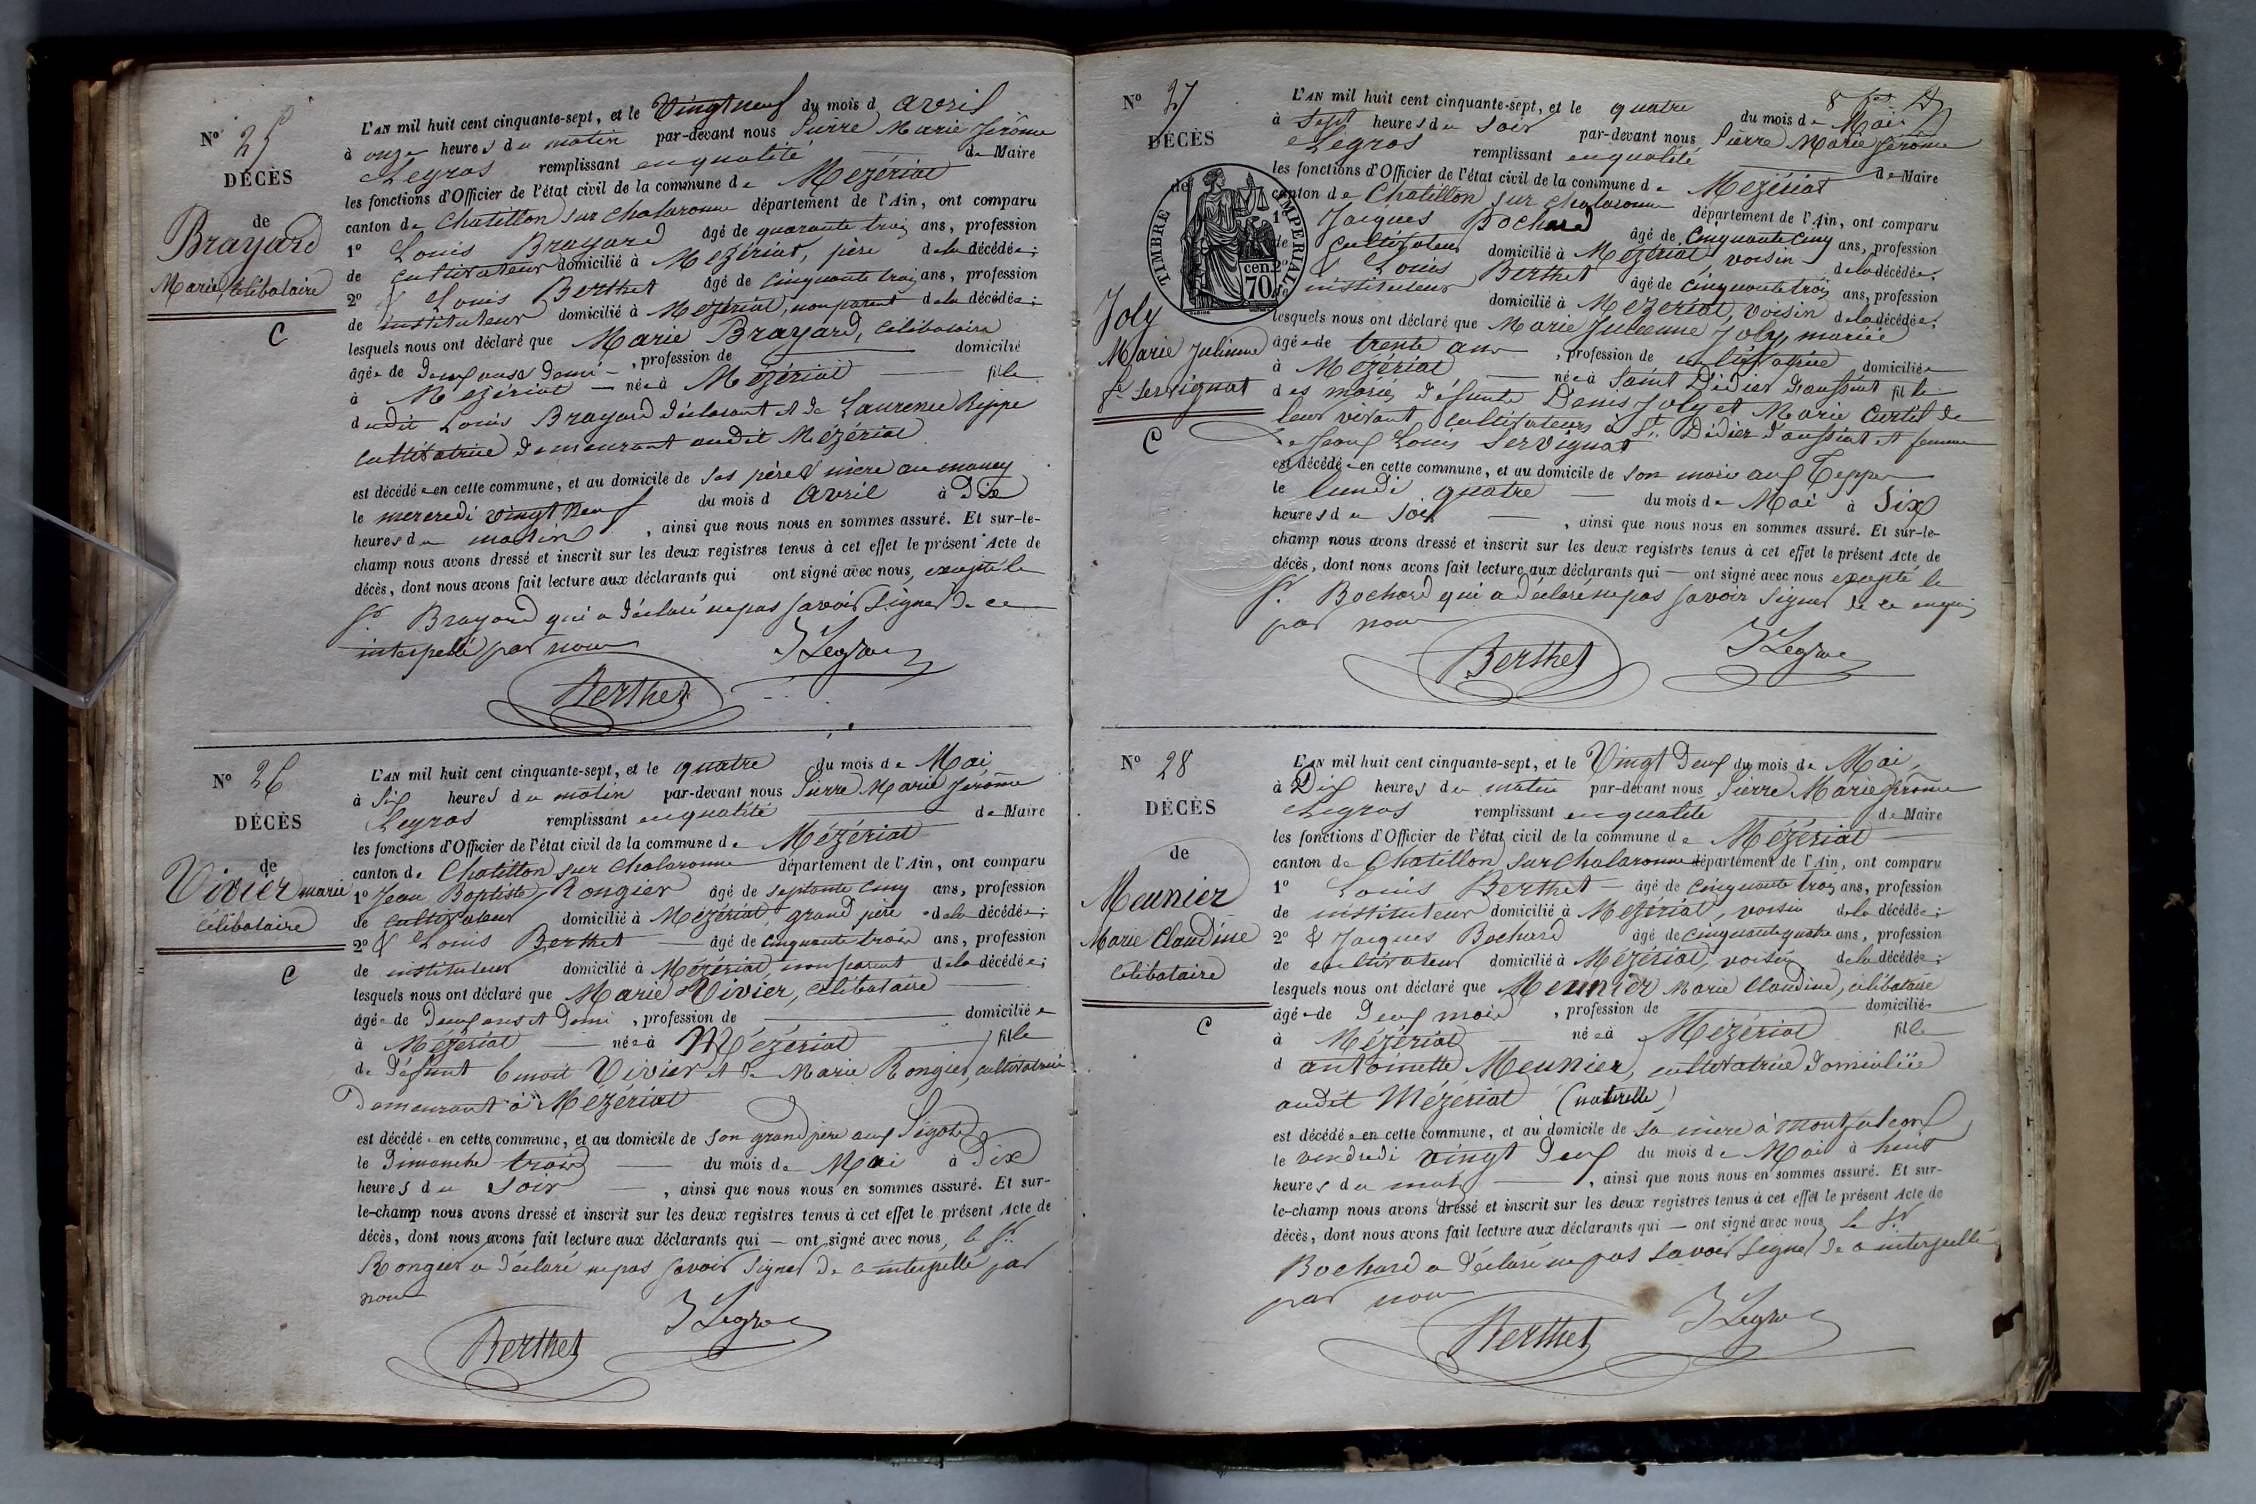 N° 25
DÉCÈS
de
Brayard
Marie, Célibataire
C
L'AN mil huit cent cinquante-sept, et le Vingt neuf du mois d avril
à onze heures du matin par-devant nous Pierre Marie Jérôme
Legros remplissant en qualité de Maire
les fonctions d'Officier de l'état civil de la commune de Mézériat
canton de Chatillon sur Chalaronne département de l'Ain, ont comparu
1° Louis Brayard âgé de quarante trois ans, profession
de cultivateur domicilié à Mézériat, père de la décédée;
2° & Louis Berthet âgé de cinquante trois ans, profession
de instituteur domicilié à Mézériat, non parent de la décédée;
lesquels nous ont déclaré que Marie Brayard, célibataire
âgée de deux ans & demi, profession de domicilié
à Mézériat née à Mézériat fille
dudit Louis Brayard déclarant et de Laurence Rippe
cultivatrice demeurant audit Mézériat
est décédée en cette commune, et au domicile de ses père & mère au
le mercredi vingt neuf du mois d avril à Dix
heures du matin, ainsi que nous nous en sommes assuré. Et sur-le-
champ nous avons dressé et inscrit sur les deux registres tenus à cet effet le présent Acte de
décès, dont nous avons fait lecture aux déclarants qui ont signé avec nous, excepté le
Sr. Brayard qui a déclaré ne pas savoir signer de ce
interpellé par nous
JLegros
Berthet
N° 26
DÉCÈS
de
Vivier marie
célibataire
C
L'AN mil huit cent cinquante-sept, et le quatre du mois de Mai
à Six heures du matin par-devant nous Pierre Marie Jérôme
Legros remplissant en qualité de Maire
les fonctions d'Officier de l'état civil de la commune de Mézériat
canton de Chatillon sur Chalaronne département de l'Ain, ont comparu
1° Jean Baptiste Rongier âgé de septante cinq ans, profession
de cultivateur domicilié à Mézériat grand père de la décédée;
2° & Louis Berthet âgé de cinquante trois ans, profession
de instituteur domicilié à Mézériat, non parent de la décédée;
lesquels nous ont déclaré que Marie Vivier, célibataire
âgée de deux ans et demi, profession de domiciliée
à Mézériat née à Mézériat fille
de défunt Benoit Vivier et de Marie Rongier, cultivatrice
demeurant à Mézériat
est décédée en cette commune, et au domicile de son grand père aux
le Dimanche trois du mois de Mai à Dix
heures du soir, ainsi que nous nous en sommes assuré. Et sur-
le-champ nous avons dressé et inscrit sur les deux registres tenus à cet effet le présent Acte de
décès, dont nous avons fait lecture aux déclarants qui — ont signé avec nous, le Sr.
Rongier a déclaré ne pas savoir signer de ce interpellé par
nous
JLegros
Berthet
N° 27
DÉCÈS
de
Joly
Marie Julienne
fe Servignat
C
TIMBRE IMPERIAL
70 cen.
L'AN mil huit cent cinquante-sept, et le quatre du mois de Mai
à sept heures du soir par-devant nous Pierre Marie Jérôme
Legros remplissant en qualité de Maire
les fonctions d'Officier de l'état civil de la commune de Mézériat
canton de Chatillon sur Chalaronne département de l'Ain, ont comparu
1° Jacques Bochard âgé de cinquante cinq ans, profession
de cultivateur domicilié à Mézériat voisin de la décédée;
2° & Louis Berthet âgé de cinquante trois ans, profession
de instituteur domicilié à Mézériat, voisin de la décédée;
lesquels nous ont déclaré que Marie Julienne Joly, mariée
âgée de trente ans, profession de cultivatrice domiciliée
à Mézériat née à Saint Didier d'aussiat fille
des mariés défunts Denis Joly et Marie Curtil de
leur vivant cultivateurs à St. Didier d'aussiat et femme
de Jean Louis Servignat
est décédée en cette commune, et au domicile de son mari aux Teppes
le lundi quatre du mois de Mai à Six
heures du soir, ainsi que nous nous en sommes assuré. Et sur-le-
champ nous avons dressé et inscrit sur les deux registres tenus à cet effet le présent Acte de
décès, dont nous avons fait lecture aux déclarants qui — ont signé avec nous excepté le
Sr. Bochard qui a déclaré ne pas savoir signer de ce enquis
par nous
Berthet JLegros
N° 28
DÉCÈS
de
Meunier
Marie Claudine
célibataire
C
L'AN mil huit cent cinquante-sept, et le Vingt Deux du mois de Mai,
à Dix heures du matin par-devant nous Pierre Marie Jérôme
Legros remplissant en qualité de Maire
les fonctions d'Officier de l'état civil de la commune de Mézériat
canton de Chatillon sur Chalaronne département de l'Ain, ont comparu
1° Louis Berthet âgé de cinquante trois ans, profession
de instituteur domicilié à Mézériat, voisin de la décédée;
2° & Jacques Bochard âgé de cinquante quatre ans, profession
de cultivateur domicilié à Mézériat, voisin de la décédée;
lesquels nous ont déclaré que Meunier Marie Claudine, célibataire
âgée de deux mois, profession de domiciliée
à Mézériat née à Mézériat fille
d antoinette Meunier, cultivatrice domiciliée
audit Mézériat (naturelle)
est décédée en cette commune, et au domicile de sa mère à
le vendredi vingt deux du mois de Mai à huit
heures du matin, ainsi que nous nous en sommes assuré. Et sur-
le-champ nous avons dressé et inscrit sur les deux registres tenus à cet effet le présent Acte de
décès, dont nous avons fait lecture aux déclarants qui — ont signé avec nous le Sr
Bochard a déclaré ne pas savoir signer de ce interpellé
par nous
Berthet JLegros